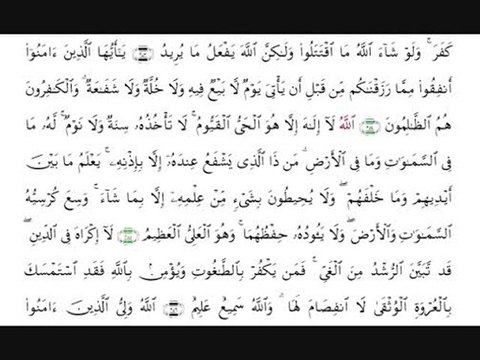 كَفَرَ ۚ وَلَوْ شَآءَ ٱللَّهُ مَا ٱقْتَتَلُوا۟ وَلَـٰكِنَّ ٱللَّهَ يَفْعَلُ مَا يُرِيدُ ۝٢٥٣ يَـٰٓأَيُّهَا ٱلَّذِينَ ءَامَنُوٓا۟
أَنفِقُوا۟ مِمَّا رَزَقْنَـٰكُم مِّن قَبْلِ أَن يَأْتِىَ يَوْمٌ لَّا بَيْعٌ فِيهِ وَلَا خُلَّةٌ وَلَا شَفَـٰعَةٌ ۗ وَٱلْكَـٰفِرُونَ
هُمُ ٱلظَّـٰلِمُونَ ۝٢٥٤ ٱللَّهُ لَآ إِلَـٰهَ إِلَّا هُوَ ٱلْحَىُّ ٱلْقَيُّومُ ۚ لَا تَأْخُذُهُۥ سِنَةٌ وَلَا نَوْمٌ ۚ لَّهُۥ مَا
فِى ٱلسَّمَـٰوَٰتِ وَمَا فِى ٱلْأَرْضِ ۗ مَن ذَا ٱلَّذِى يَشْفَعُ عِندَهُۥٓ إِلَّا بِإِذْنِهِۦ ۚ يَعْلَمُ مَا بَيْنَ
أَيْدِيهِمْ وَمَا خَلْفَهُمْ ۖ وَلَا يُحِيطُونَ بِشَىْءٍ مِّنْ عِلْمِهِۦٓ إِلَّا بِمَا شَآءَ ۚ وَسِعَ كُرْسِيُّهُ
ٱلسَّمَـٰوَٰتِ وَٱلْأَرْضَ ۖ وَلَا يَـُٔودُهُۥ حِفْظُهُمَا ۚ وَهُوَ ٱلْعَلِىُّ ٱلْعَظِيمُ ۝٢٥٥ لَآ إِكْرَاهَ فِى ٱلدِّينِ ۖ
قَد تَّبَيَّنَ ٱلرُّشْدُ مِنَ ٱلْغَىِّ ۚ فَمَن يَكْفُرْ بِٱلطَّـٰغُوتِ وَيُؤْمِنۢ بِٱللَّهِ فَقَدِ ٱسْتَمْسَكَ
بِٱلْعُرْوَةِ ٱلْوُثْقَىٰ لَا ٱنفِصَامَ لَهَا ۗ وَٱللَّهُ سَمِيعٌ عَلِيمٌ ۝٢٥٦ ٱللَّهُ وَلِىُّ ٱلَّذِينَ ءَامَنُوا۟